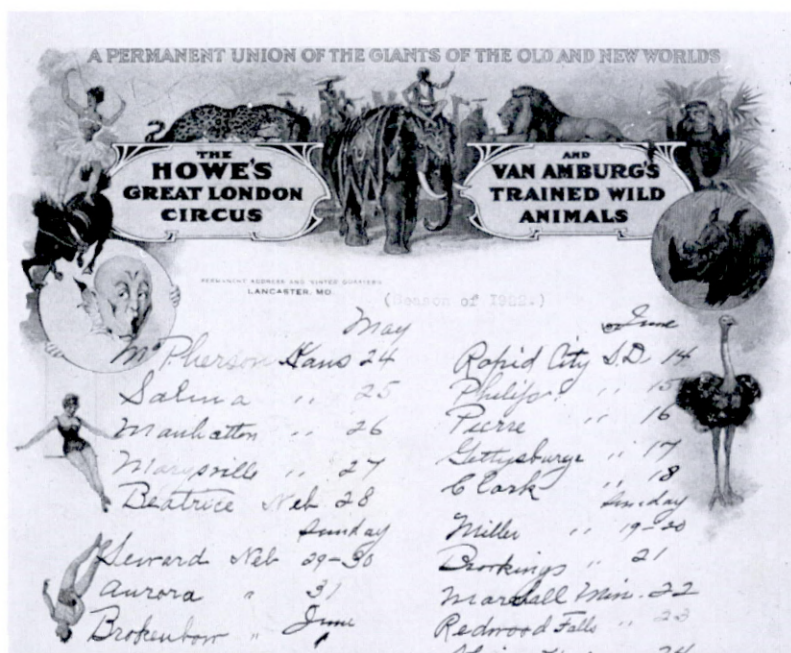 A PERMANENT UNION OF THE GIANTS OF THE OLD AND NEW WORLDS
THE
HOWE'S
GREAT LONDON
CIRCUS
AND
VAN AMBURG'S
TRAINED WILD
ANIMALS
PERMANENT ADDRESS AND WINTER QUARTERS
LANCASTER, MO.
(Season of 1922.)
May
McPherson Kans 24
Salina " 25
Manhatton " 26
Marysville " 27
Beatrice Neb 28
Sunday
Seward Neb 29-30
Aurora " 31
Brokenbow " June 1
June
Rapid City S.D. 14
Philip " 15
Pierre " 16
Gettysburge " 17
Clark " 18
Sunday
Miller " 19-20
Brookings " 21
Marshall Min. 22
Redwood Falls " 23
24